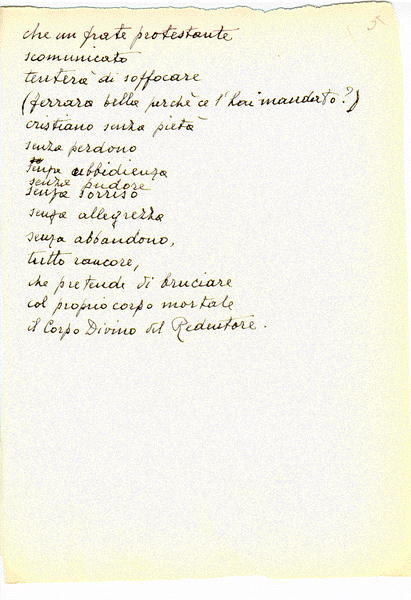 5
che un frate protestante
scomunicato
tenterà di soffocare
(ferrara bella perchè ce l'hai mandato?)
cristiano senza pietà
senza perdono
senza ubbidienza
senza pudore
senza sorriso
senza allegrezza
senza abbandono,
tutto rancore,
che pretende di bruciare
col proprio corpo mortale
il Corpo Divino del Redentore.